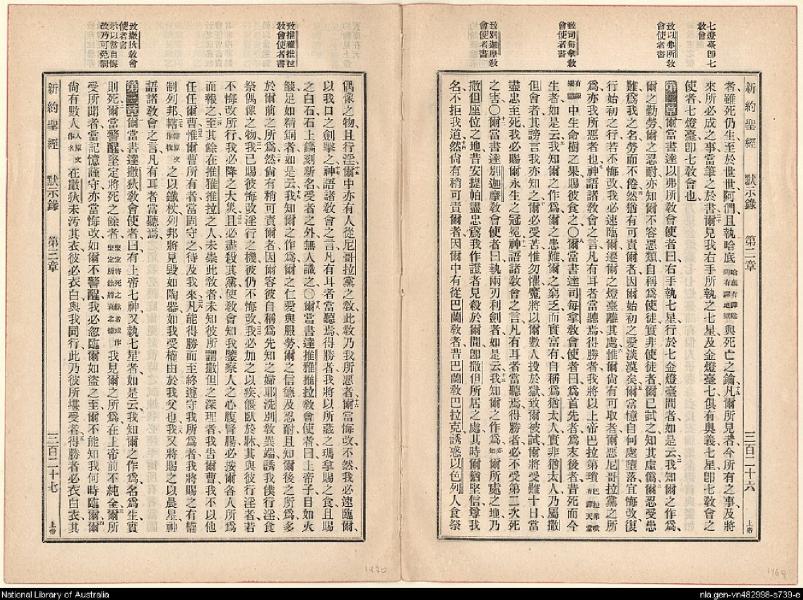 七燈臺即七
敎會
致以弗所敎
會使者書
致司每拿敎
會使者書
致別迦摩敎
會使者書
新約聖經 默示錄 第二章 三百二十六 上帝
者、雖死仍生、至於世世、阿們、且執哈底與死亡之鑰、凡爾所見者、今所有之事、及將
來所必成之事、當筆之於書、爾見我右手所執之七星、及金燈臺七、俱有奧義、七星即七敎會之
使者、七燈臺即七敎會也、
第二章 爾當書達以弗所敎會使者曰、右手執七星、行於七金燈臺間者、如是云、我知爾之作爲、
爾之勤勞、爾之忍耐、亦知爾不容惡類、自稱爲使徒實非使徒者、爾已試之、知其虛僞、爾忍受患
難、爲我之名勞而不倦、然猶有可責爾者、因爾始初之愛淡漠矣、爾當憶自何處墮落、宜悔改、復
行始初之行、若不悔改、我必速臨爾、遷爾之燈臺離其處、惟爾尙有可取者、爾惡尼哥拉黨之所
爲、亦我所惡者也、神語諸敎會之言、凡有耳者當聽焉、得勝者、我將以上帝巴拉第瑣
中生命樹之果賜彼食之、〇爾當書達司每拿敎會使者曰、爲首先者、爲末後者、昔死而今
生者、如是云、我知爾之作爲、爾之患難、爾之窮乏、而實富有、自稱爲猶太人、實非猶太人、乃屬撒
但會者、其謗言我亦知之、爾必受苦、惟勿懼、魔將以爾數人投於獄、致爾被試、爾將受難十日、當
盡忠至死、我必賜爾永生之冠冕、神語諸敎會之言、凡有耳者當聽焉、得勝者必不受第二次死
之害、〇爾當書達別迦摩敎會使者曰、執兩刃利劍者、如是云、我知爾之作爲、知爾所處之地、乃
撒但座位之地、昔安提帕盡忠爲我作證者、見殺於爾間、即撒但所居之處、其時爾猶堅信尊我
名、不拒我道、然尙有稍可責爾者、因爾中有從巴蘭敎者、昔巴蘭敎巴拉克誘惑以色列人食祭
致推雅推拉
敎會使者書
致撒狄敎會
使者書
新約聖經 默示錄 第三章 三百二十七 上帝
偶像之物、且行淫、爾中亦有人從尼哥拉黨之敎、此敎乃我所惡者、爾當悔改、不然、我必速臨爾、
以我口之劍擊之、神語諸敎會之言、凡有耳者當聽焉、得勝者、我將以所藏之瑪拿賜之食、且賜
之白石、石上鐫刻新名、受者之外、無人識之、〇爾當書達推雅推拉敎會使者曰、上帝子目如火
燄、足如精銅者、如是云、我知爾之作爲、爾之仁愛與服勞、爾之信德及忍耐、且知爾後之所爲、多
於爾前之所爲、然尙有稍可責爾者、因爾容彼自稱爲先知之婦耶洗別、敎異端誘我僕行淫、食
祭偶像之物、我已賜彼悔改淫行之機、彼仍不悔改、我必加之以疾、偃臥於牀、其與彼行淫者、若
不悔改所行、我必降之大災、且必盡殺其黨、使敎會知我鑒察人之心腹腎腸、必按爾各人所爲
而報之、至其餘在推雅推拉之人、未崇此敎者、未知彼所謂撒但之深理者、我吿爾曹、我不以他
任任爾曹、惟爾曹所有者當固守之、待及我來、凡能得勝而至終遵守我所爲者、我將賜之有權
制列邦、轄之以鐵杖、列邦將見毀如陶器、如我受權由於我父也、我又將賜之以晨星、神
語諸敎會之言、凡有耳者當聽焉、
第三章 爾當書達撒狄敎會使者曰、有上帝七神、又執七星者、如是云、我知爾之作爲、名爲生實
則死、爾當警醒、堅定將死之餘者、我見爾之所爲、在上帝前不純全、爾所
受所聞者、當記憶謹守、亦當悔改、如爾不警醒、我必忽臨爾如盜之至、爾不能知我何時臨爾、
尙有數人、在撒狄、未汚其衣、彼必衣白與我同行、此乃彼所堪受者、得勝者必衣白衣、其